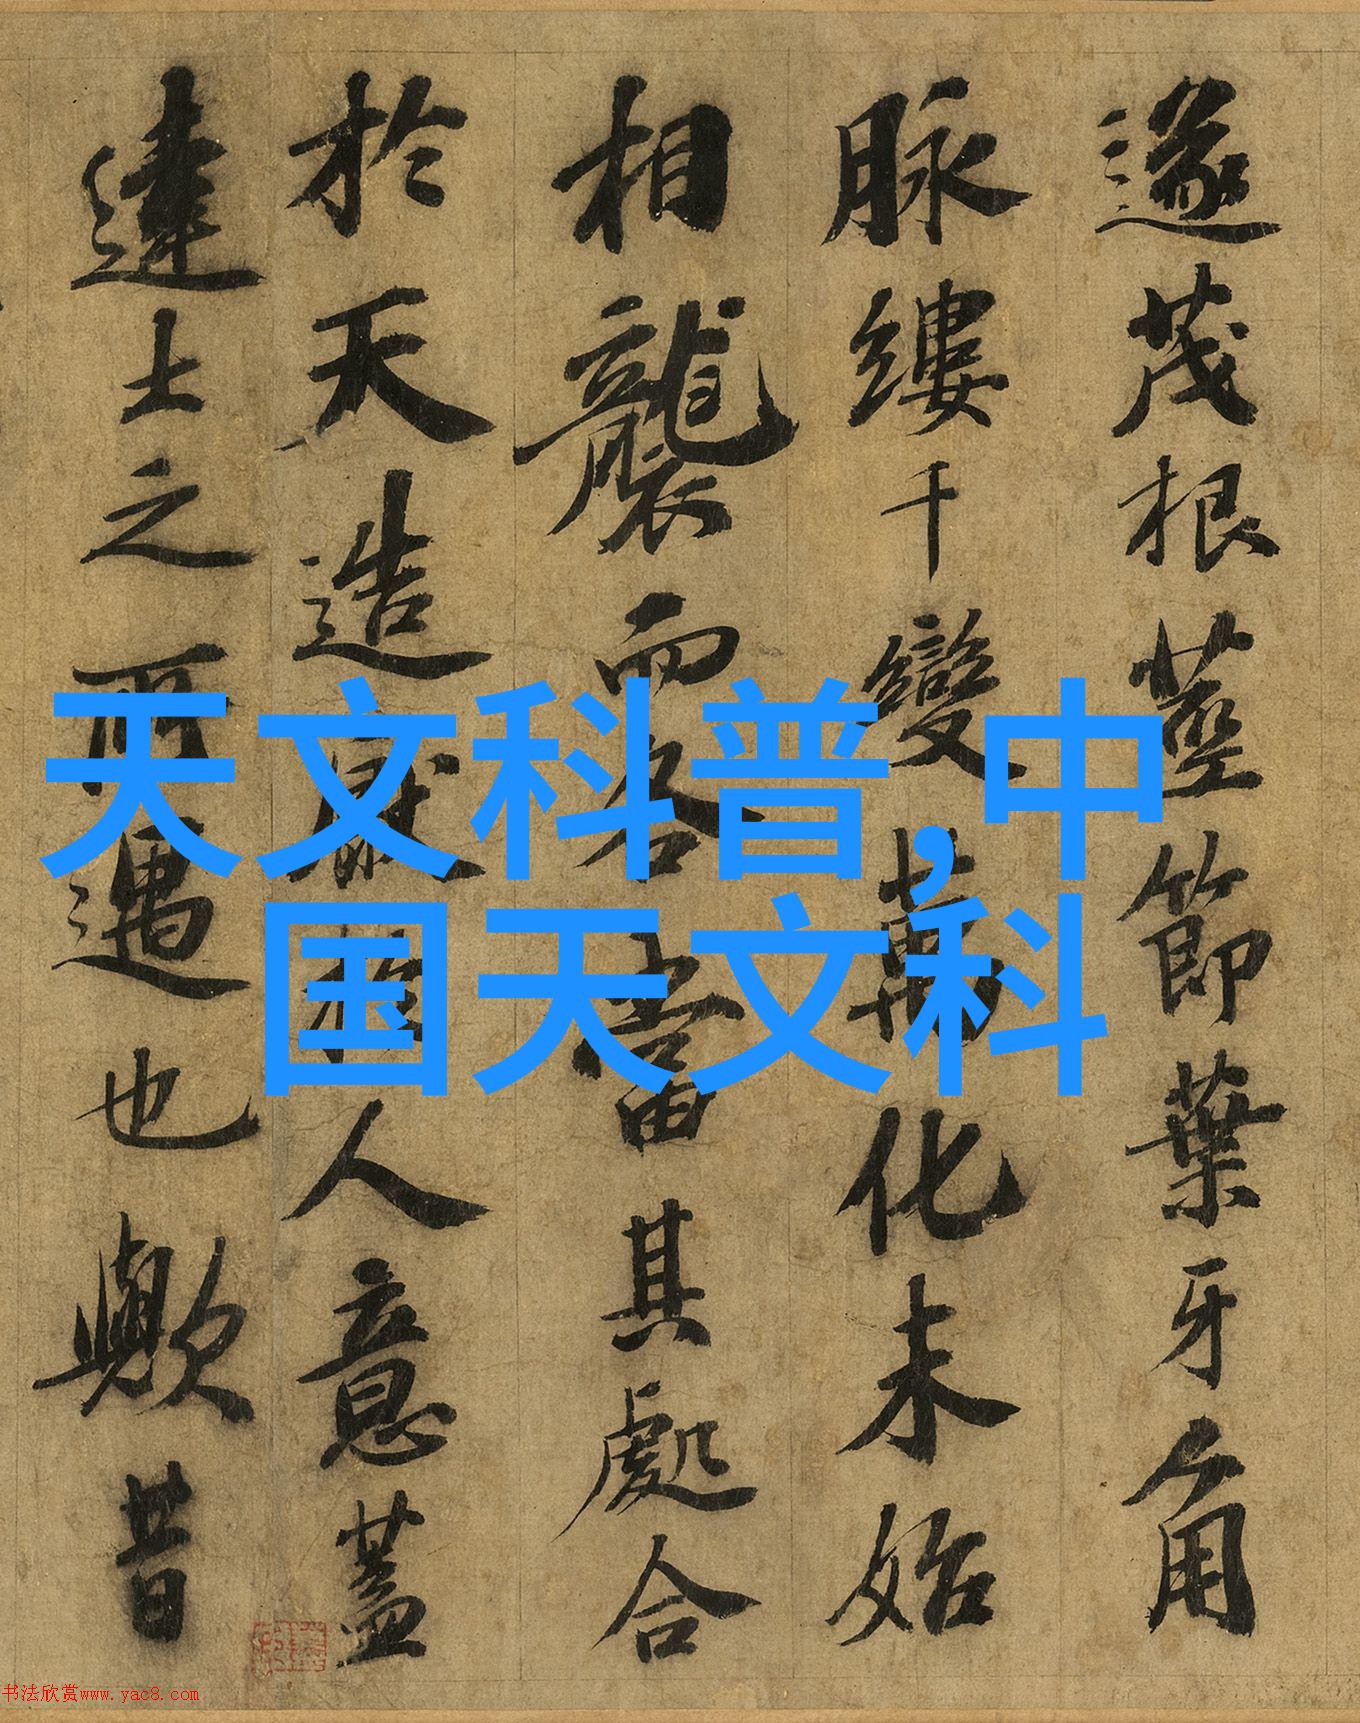 遂茂根莖節葉牙角
脉縷千變萬化未始
相襲而各當其處合
於天造厭於人意蓋
達士之所遇也歟昔
天文科普,中
国天文科
书法欣赏www.yac8.com